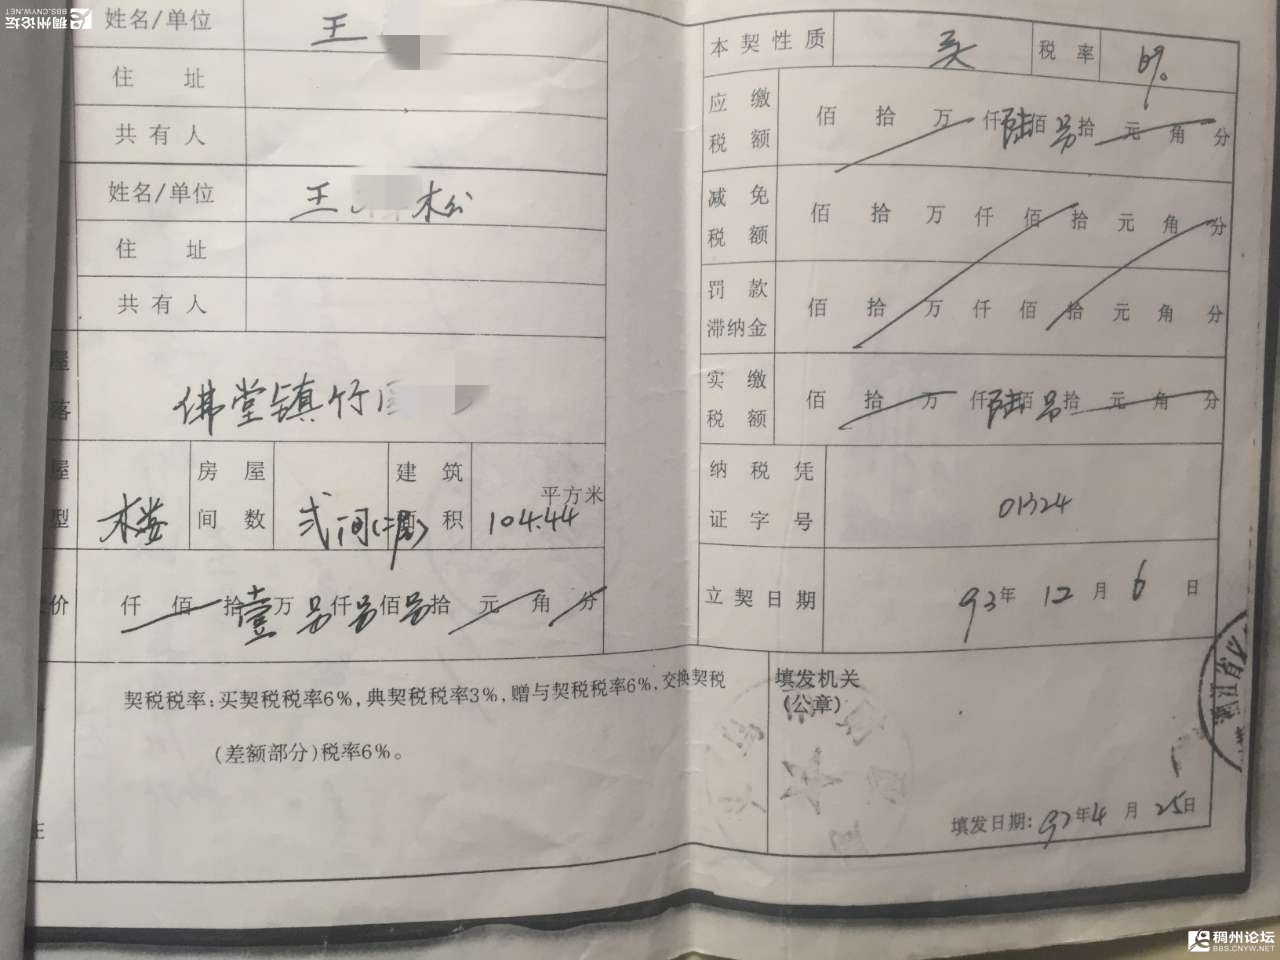 稠州论坛
BBS.CNYW.NET
姓名/单位 王
住 址
共有人
姓名/单位 王 松
住 址
共有人
屋
落
佛堂镇竹园
屋
型
木楼
房屋
间数
弍间(二层)
建筑
面积
平方米
104.44
价
仟 佰 拾 壹 万 另 仟 另 佰 另 拾 元 角 分
契税税率:买契税税率6%,典契税税率3%,赠与契税税率6%,交换契税
(差额部分)税率6%。
本契性质 买 税率 6%
应缴
税额
佰 拾 万 仟 陆 佰 另 拾 元 角 分
减免
税额
佰 拾 万 仟 佰 拾 元 角 分
罚款
滞纳金
佰 拾 万 仟 佰 拾 元 角 分
实缴
税额
佰 拾 万 仟 陆 佰 另 拾 元 角 分
纳税凭
证字号
01324
立契日期 93年 12月 6日
填发机关
(公章)
浙江省
填发日期: 97年4月25日
稠州论坛
BBS.CNYW.NET